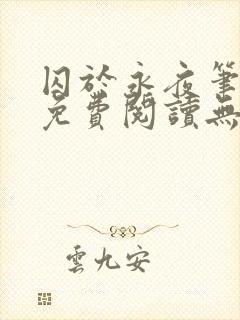 囚於永夜筆
免費閱讀無
雲九安